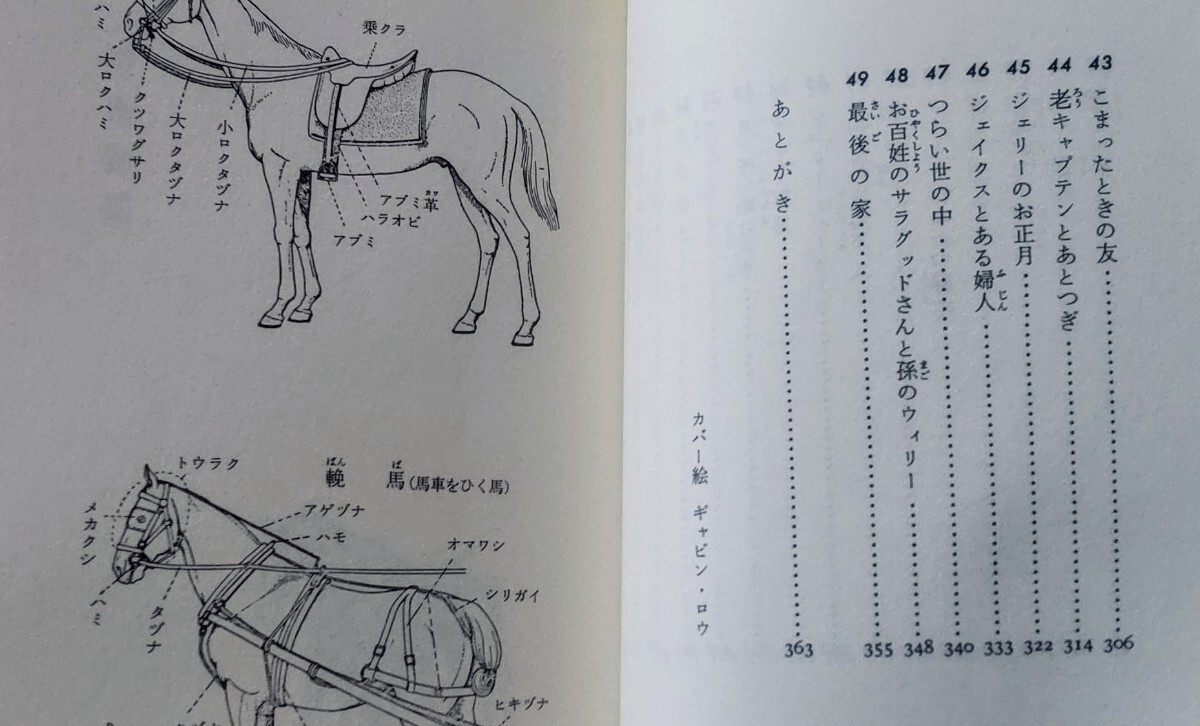 43 こまったときの友 306
44 老キャプテンとあとつぎ 314
ろう
45 ジェリーのお正月 322
46 ジェイクスとある婦人 333
ふじん
47 つらい世の中 340
48 お百姓のサラグッドさんと孫のウィリー 348
ひゃくしょう
まご
49 最後の家 355
さいご
あとがき 363
カバー絵 ギャビン・ロウ
乗クラ
ハミ
大ロクハミ
クツワグサリ
大ロクタヅナ
小ロクタヅナ
アブミ革
カワ
ハラオビ
アブミ
輓馬(馬車をひく馬)
ばんば
トウラク
アゲヅナ
ハモ
オマワシ
メカクシ
シリガイ
ハミ
タヅナ
ヒキヅナ